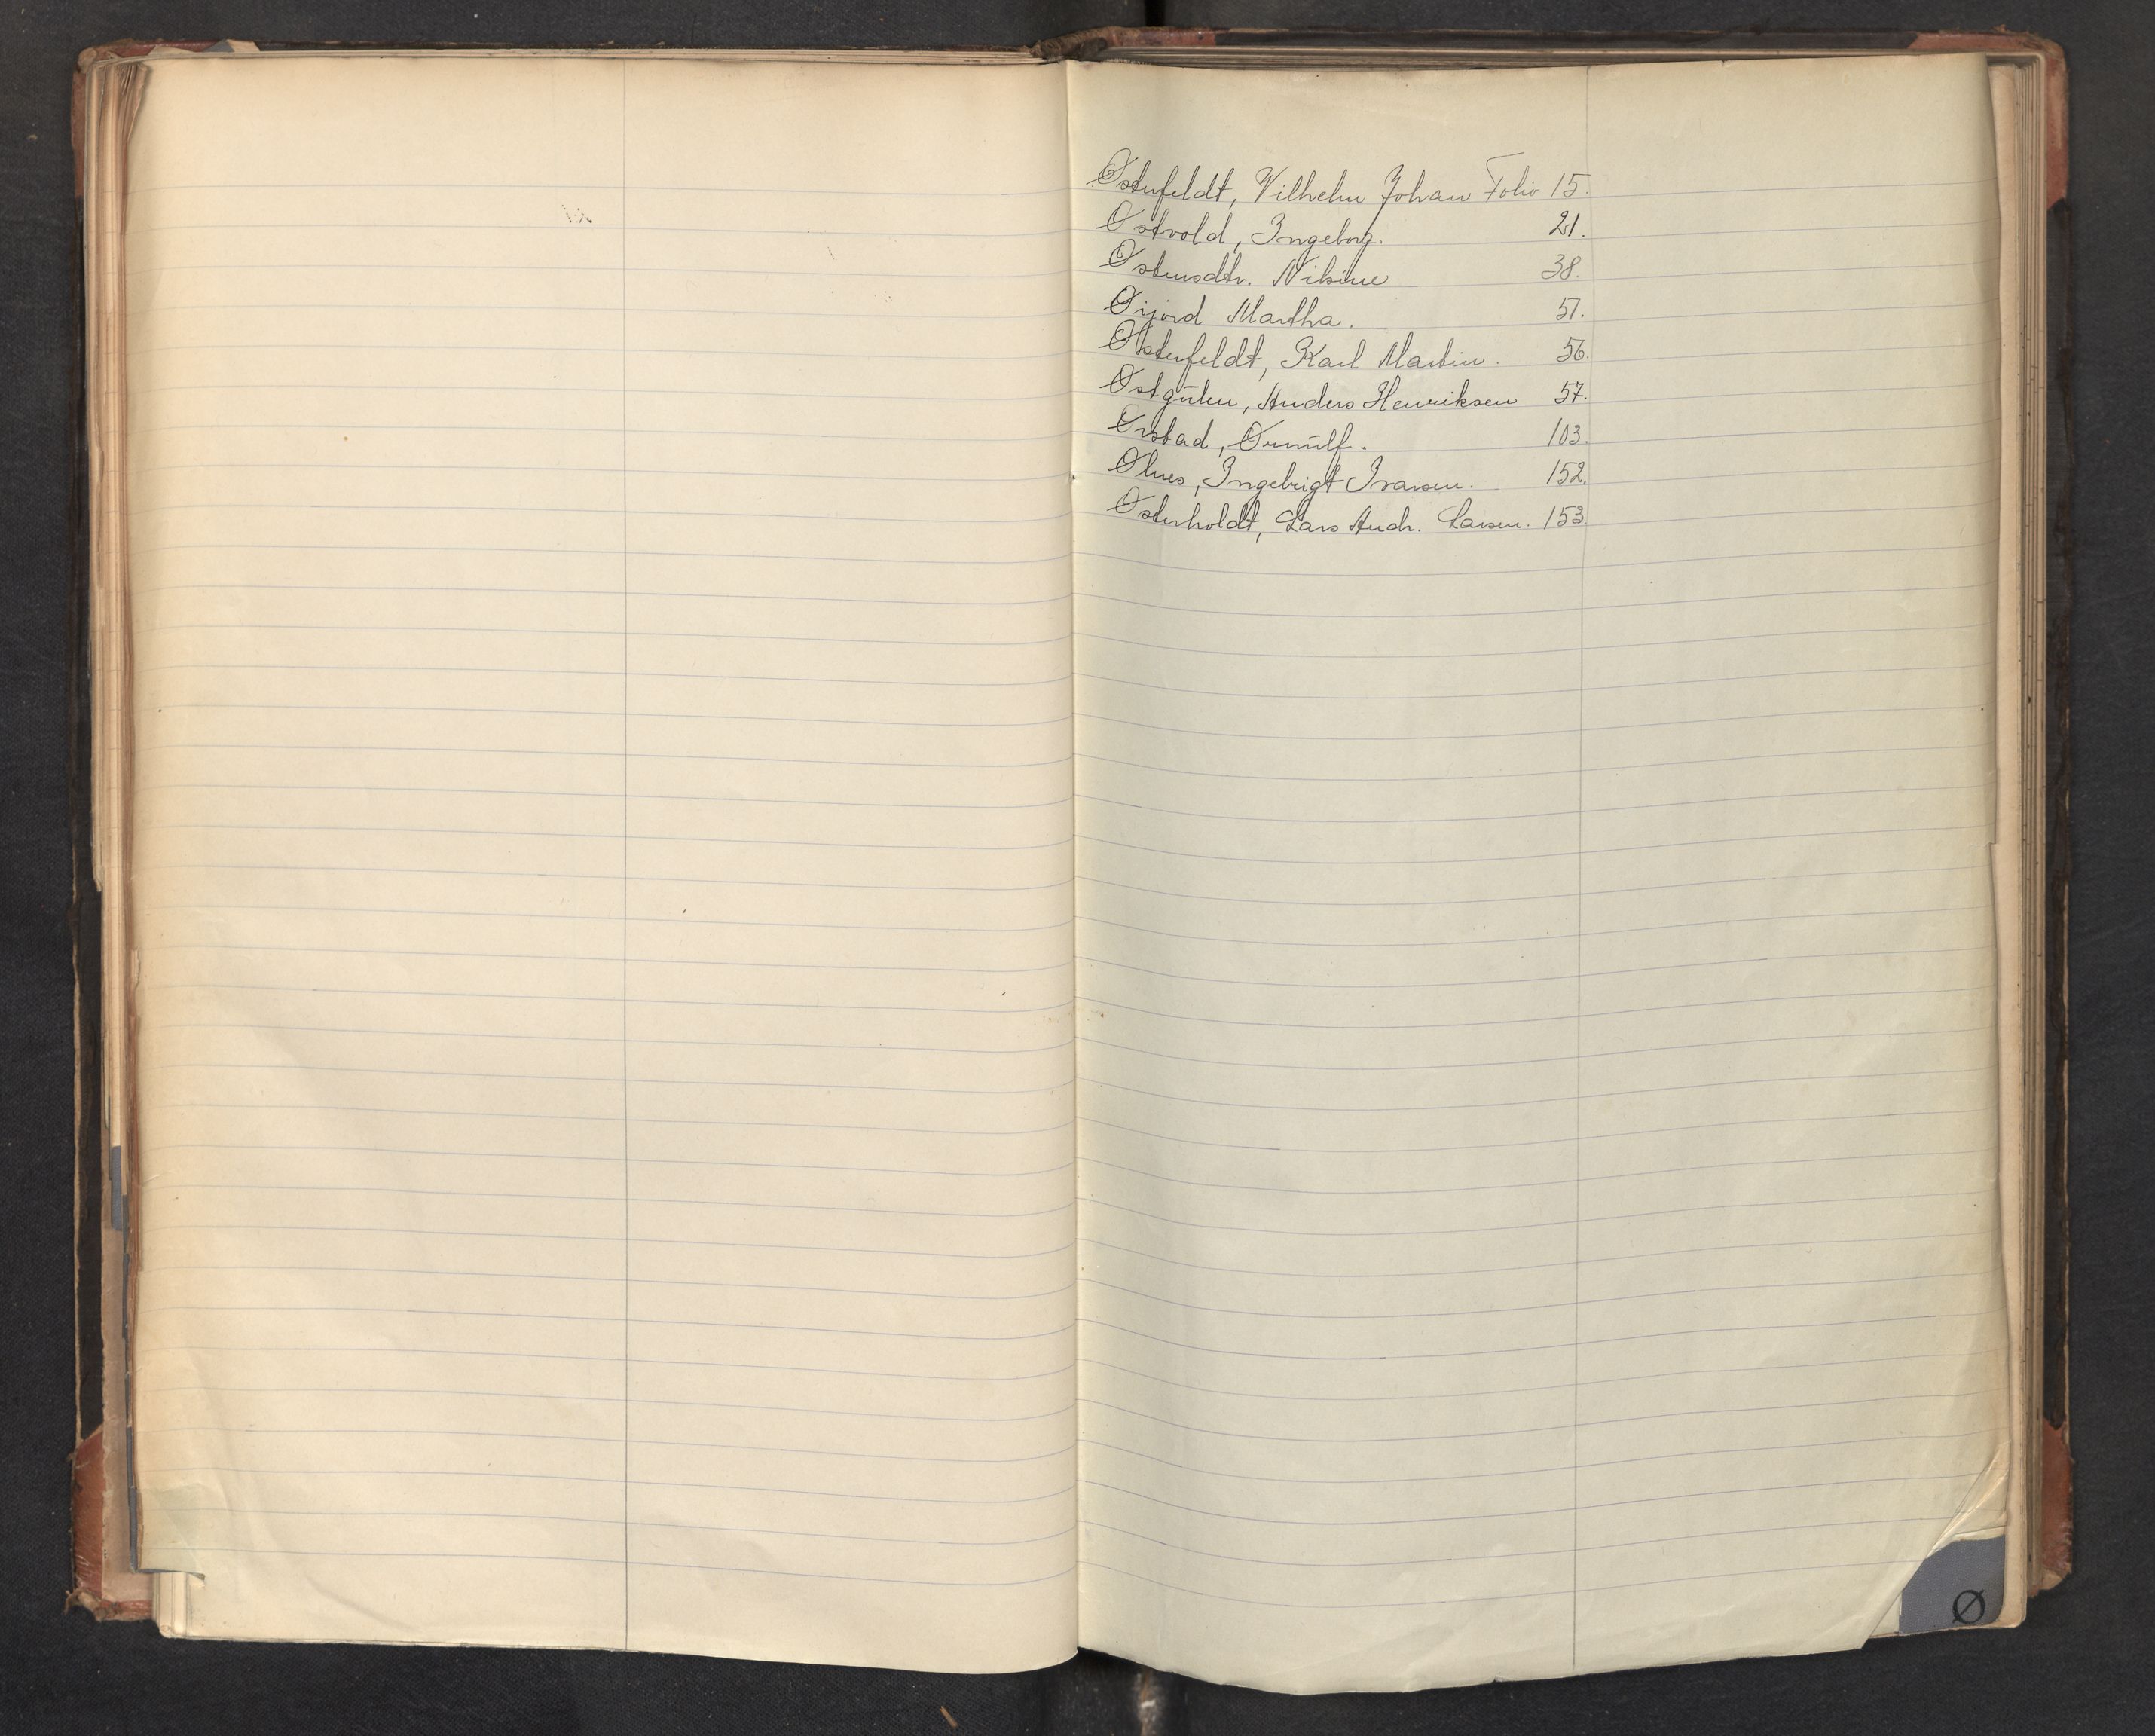 Østerfeldt, Vilhelm Johan Folio 15.
Østvold, Ingeborg. 21.
Østensdtr. Nilsine 38.
Øijord Martha. 51.
Østerfeldt, Karl Martin. 56.
Østgulen, Anders Henriksen 57.
Ørstad, Ørnulf. 103.
Ølnes, Ingebrigt Ivarsen. 152.
Østerholdt, Lars Andr. Larsen. 153.
Ø